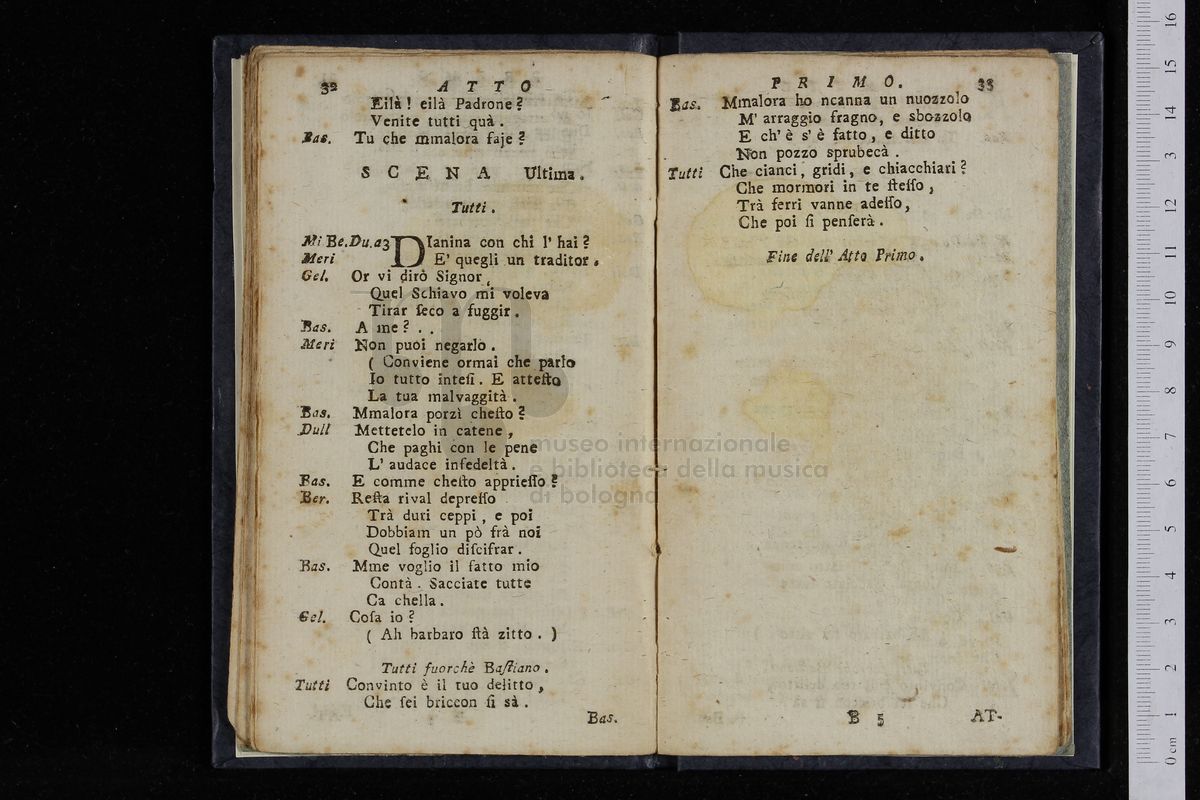 32 ATTO
Eilà ! eilà Padrone ?
Venite tutti quà .
Bas. Tu che mmalora faje ?
SCENA Ultima .
Tutti .
Mi Be.Du.a3 DIanina con chi l' hai ?
Meri E' quegli un traditor .
Gel. Or vi dirò Signor ,
Quel Schiavo mi voleva
Tirar ſeco a fuggir .
Bas. A me ? . .
Meri Non puoi negarlo .
( Conviene ormai che parlo
Io tutto inteſi . E atteſto
La tua malvaggità .
Bas. Mmalora porzì cheſto ?
Dull Mettetelo in catene ,
Che paghi con le pene
L' audace infedeltà .
Bas. E comme cheſto apprieſſo ?
Ber. Reſta rival depreſſo
Trà duri ceppi , e poi
Dobbiam un pò frà noi
Quel foglio diſcifrar .
Bas. Mme voglio il fatto mio
Contà . Sacciate tutte
Ca chella .
Gel. Coſa io ?
( Ah barbaro ſtà zitto . )
Tutti fuorchè Baſtiano .
Tutti Convinto è il tuo delitto ,
Che ſei briccon ſi sà .
Bas.
PRIMO. 33
Bas. Mmalora ho ncanna un nuozzolo
M' arraggio fragno, e sbozzolo
E ch' è s' è fatto , e ditto
Non pozzo sprubecà .
Tutti Che cianci, gridi, e chiacchiari ?
Che mormori in te ſteſſo ,
Trà ferri vanne adeſſo,
Che poi ſi penſerà .
Fine dell' Atto Primo .
B 5 AT-
museo internazionale
e biblioteca della musica
di bologna
0 cm 1 2 3 4 5 6 7 8 9 10 11 12 13 14 15 16